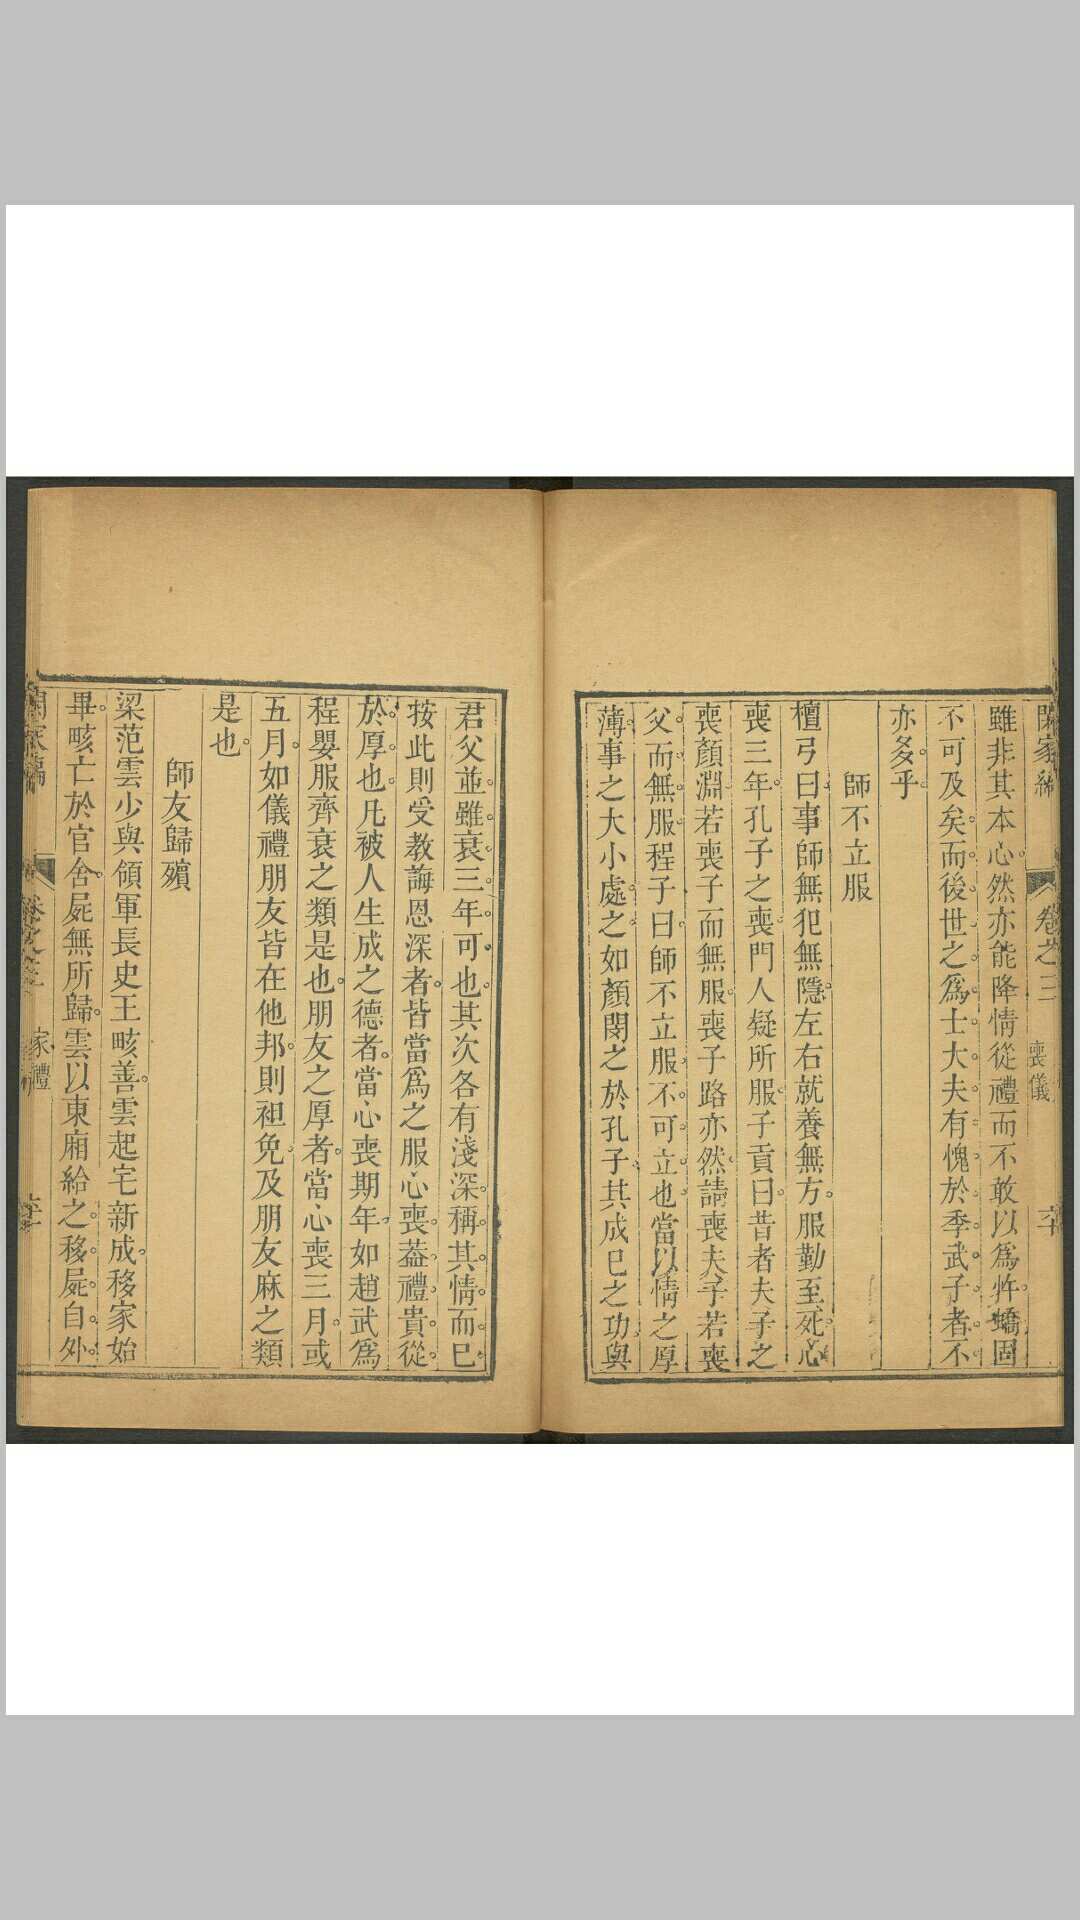 閑家編
卷之三
喪儀
雖非其本心然亦能降情從禮而不敢以爲忤蟜固
不可及矣而後世之爲士大夫有愧於季武子者不
亦多乎
師不立服
檀弓曰事師無犯無隱左右就養無方服勤至死心
喪三年孔子之喪門人疑所服子貢曰昔者夫子之
喪顏淵若喪子而無服喪子路亦然請喪夫子若喪
父而無服程子曰師不立服不可立也當以情之厚
薄事之大小處之如顏閔之於孔子其成已之功與
君父並雖衰三年可也其次各有淺深稱其情而已
按此則受教誨恩深者皆當爲之服心喪葢禮貴從
於厚也凡被人生成之德者當心喪期年如趙武爲
程嬰服齊衰之類是也朋友之厚者當心喪三月或
五月如儀禮朋友皆在他邦則袒免及朋友麻之類
是也
師友歸殯
梁范雲少與領軍長史王畡善雲起宅新成移家始
畢畡亡於官舍屍無所歸雲以東廂給之移屍自外
家禮